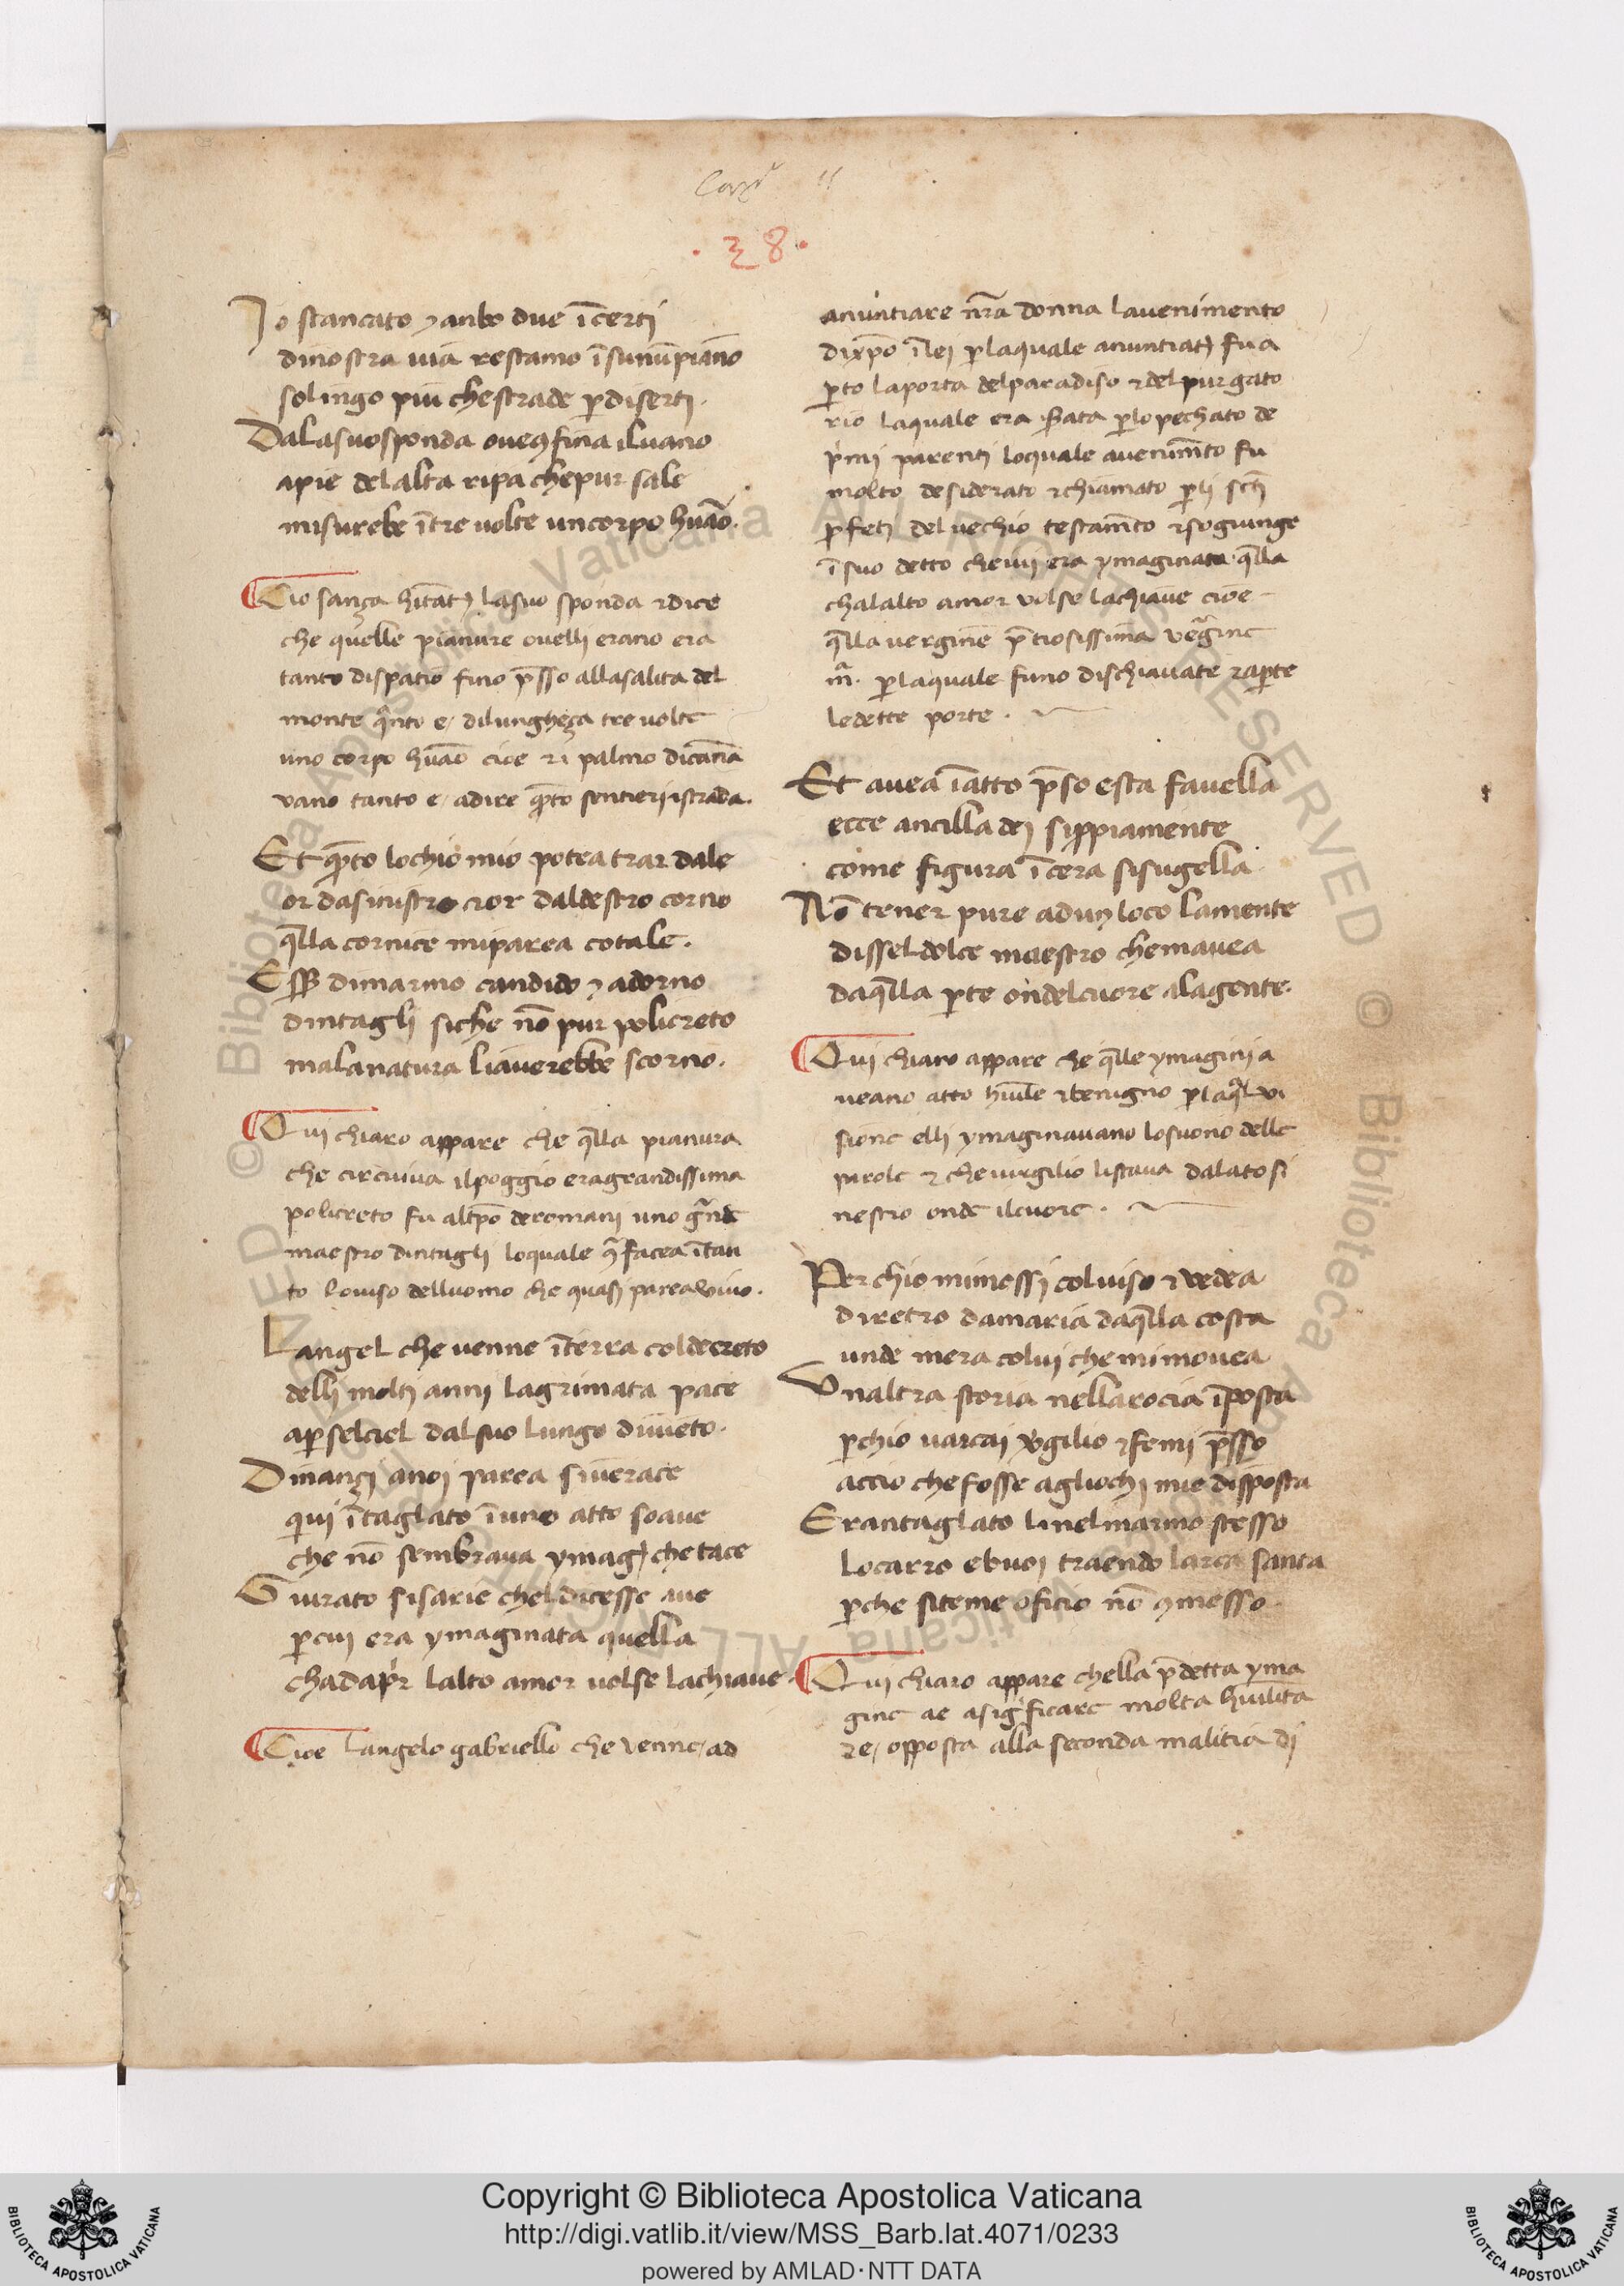 . 38 .
Io stancato ⁊ anbo due ĩcerti
dinostra uia restamo ĩsunũpiano
solingo piu chestrade ꝑdiserti.
Dalasuosponda oueꝯfina iluano
apie delalta ripa chepur sale
misurebe ĩtre uolte uncorpo hũao.
Cio sança lasuo sponda ⁊dice
che quelle pianure ouelli erano era
tanto dispatio fino p̃sso allasalita del
monte q̃nto e, dilungheça tre uolte
uno corpo hũao cioe palmo dicanna
uano tanto e, adire sentieri istrada.
Et lochio mio potea trar dale
or dasinistro ⁊ior daldestro corno
q̃lla cornice miparea cotale.
dimarmo candido ⁊ adorno
dintagli siche nõ pur policreto
malanatura liauerebbe scorno.
Qui chiaro appare che q̃lla pianura
che circuiua ilpoggio eragrandissima
policreto fu deromani uno
maestro dintagli loquale facea ĩtan
to louiso delluomo che quasi pareauiuo.
Langel che uenne ĩterra coldecreto
delli molti anni lagrimata pace
aꝑselciel dalsuo lungo diuieto.
Dinançi anoi parea siuerace
qui ĩtaglato ĩuno atto soaue
che nõ sembraua ymag̃ chetace
Giurato sisarie cheldicesse aue
ꝑcui era ymaginata quella
chadaꝑir lalto amor uolse lachiaue.
Cioe Langelo gabriello che uenne, ad
anuntiare nr̃a donna lauenimento
dixp̃o ĩlei ꝑlaquale anuntiat fu a
ꝑto laporta delparadiso ⁊del purgato
rio laquale era ꝑlopechato de
pⁱmi parenti loquale auenim̃to fu
molto desiderato ⁊chiamato ꝑli
ꝓfeti del uechio testam̃to ⁊sogiunge
ĩsuo detto cheuij era ymaginata q̃lla
chalalto amor uolse lachiaue cioe
q̃lla uergine p̃tiosissima
m̃. ꝑlaquale funo dischiauate ⁊aꝑte
ledette porte.
Et auea ĩatto p̃so esta fauella
ecce ancilla dei sippiamente
come figura ĩcera sisugella
Nõ tener pure adun loco lamente
disseldolce maestro chemauea
daq̃lla ꝑte ondelcuore alagente.
Qui chiaro appare che q̃lle ymagini a
ueano atto hũile ⁊benigno ꝑlaq̃l ui
sione elli ymaginauano losuono delle
parole ⁊ cheuirgilio listaua dalato si
nestro onde ilcuore.
Per chio mimossi coluiso ⁊ uedea
diretro damaria daq̃lla costa
unde mera colui che mimouea
Unaltra storia nellarocia ĩposta
ꝑchio uarcai uʳgilio ⁊femi p̃sso
accio che fosse agliochi mie disposta
Erantaglato linelmarmo stesso
locarro ebuoi traendo larca santa
ꝑche siteme oficio nõ ꝯmesso.
Qui chiaro appare chella p̃detta yma
gine ae asigⁱficare molta hũilita
⁊e, opposta alla seconda malitia di
Copyright © Biblioteca Apostolica Vaticana
http://digi.vatlib.it/view/MSS_Barb.lat.4071/0233
powered by AMLAD·NTT DATA